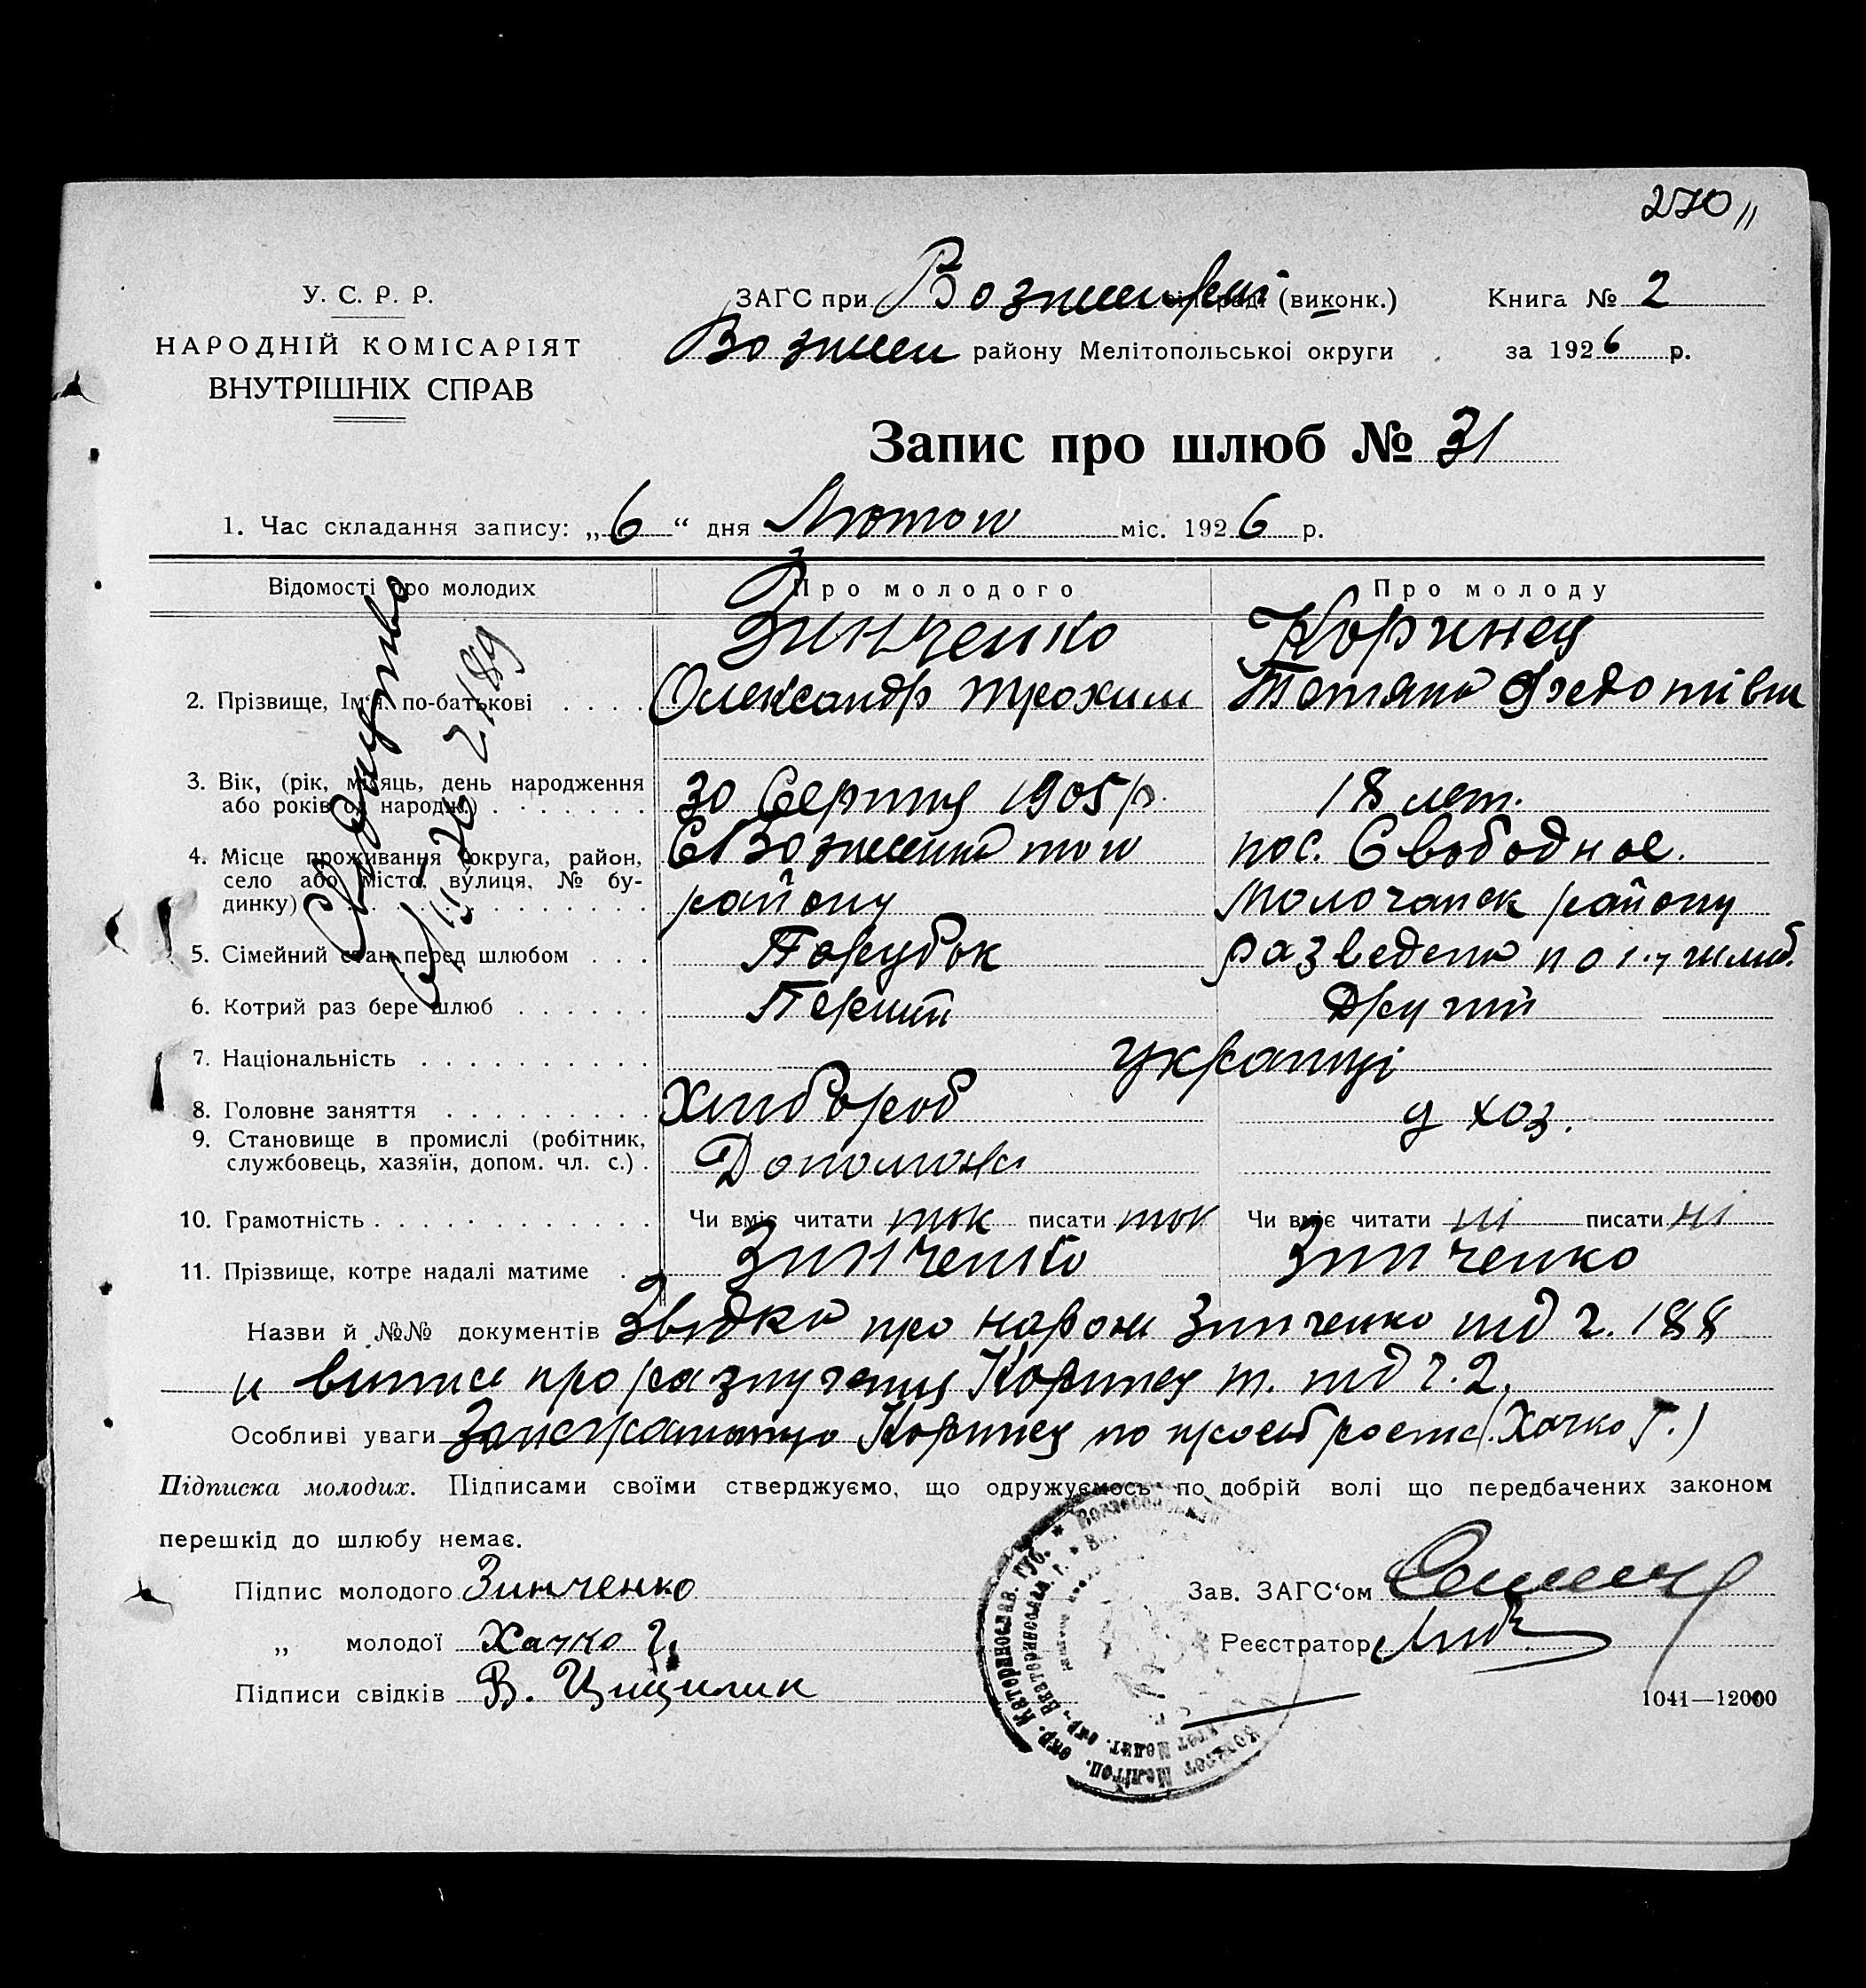 270
У. С. Р. Р.
НАРОДНІЙ КОМІСАРІЯТ
ВНУТРІШНІХ СПРАВ
ЗАГС при (виконк.) Книга № 2
Вознесен району Мелітопольської округи за 1926 р.
Запис про шлюб № 31
1. Час складання запису: „6“ дня Лютого міс. 1926 р.
Відомості про молодих Про молодого Про молоду
Зинченко Коринец
2. Прізвище, Ім'я по-батькові . . . . Олександр Трохим Татяна Федотівна
3. Вік, (рік, місяць, день народження
або років від народж.) . . . . . . . 30 Серпня 1905 р. 18 лет.
4. Місце проживання (округа, район, пос. Свободное.
село або місто, вулиця, № бу-
динку) . . . . району Молочанск району
5. Сімейний стан перед шлюбом . . . Парубок разведена
6. Котрий раз бере шлюб . . . . . . Перший Другий
7. Національність . . . . . . . . . . українці
8. Головне заняття . . . . . . . . . Хлибороб д хоз.
9. Становище в промислі (робітник,
службовець, хазяїн, допом. чл. с.) . Допомож
10. Грамотність . . . . . . . . . . . . Чи вміє читати так писати так Чи вміє читати ні писати ні
11. Прізвище, котре надалі матиме . . Зинченко Зинченко
Назви й №№ документів Звідка про народж Зинченко під ч. 188
и витис про разлучения Коринец т. під ч. 2.
Особливі уваги Коринец по (Хачко Г.)
Підписка молодих. Підписами своїми стверджуємо, що одружуємось по добрій волі що передбачених законом
перешкід до шлюбу немає.
Підпис молодого Зинченко Зав. ЗАГС‘ом
„ молодої Хачко Г. Реєстратор
Підписи свідків В.
1041—12000